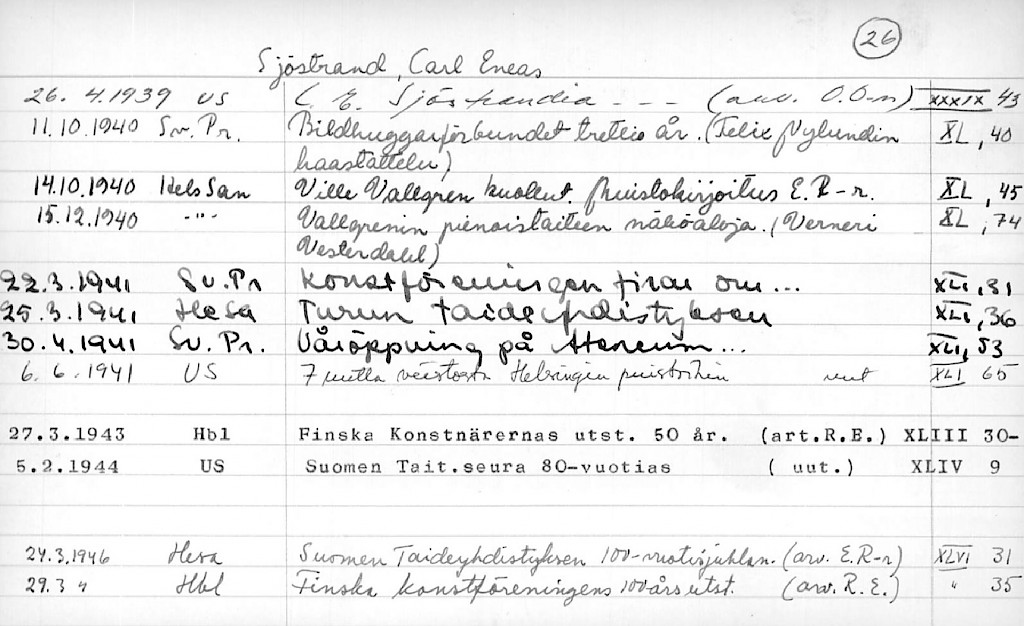 26
Sjöstrand, Carl Eneas
26. 4.1939 US C. E. Sjöstrandia - - - (arv. O.O-n) XXXIX 43
11.10.1940 Sv. Pr. Bildhuggarförbundet trettio år. (Felix Nylundin XL, 40
haastattelu)
14.10.1940 Hels San Ville Vallgren kuollut. Muistokirjoitus E. R-r. XL, 45
15.12.1940 -"- Vallgrenin pienoistaiteen näköaloja. (Verneri XL, 74
Vesterdahl)
22.3.1941 Sv. Pr Konstföreningen firar om... XLI, 31
25.3.1941 HeSa Turun Taideyhdistyksen XLI, 36
30.4.1941 Sv. Pr. Våröppning på Ateneum... XLI, 53
6. 6. 1941 US 7 uutta veistosta Helsingin puistoihin uut XLI 65
27.3.1943 Hbl Finska Konstnärernas utst. 50 år. (art.R.E.) XLIII 30-
5.2.1944 US Suomen Tait.seura 80-vuotias ( uut.) XLIV 9
24.3.1946 Hesa Suomen Taideyhdistyksen 100-vuotisjuhlan. (arv. E.R-r) XLVI 31
29.3 " Hbl Finska konstföreningens 100års utst. (arv. R. E.) " 35